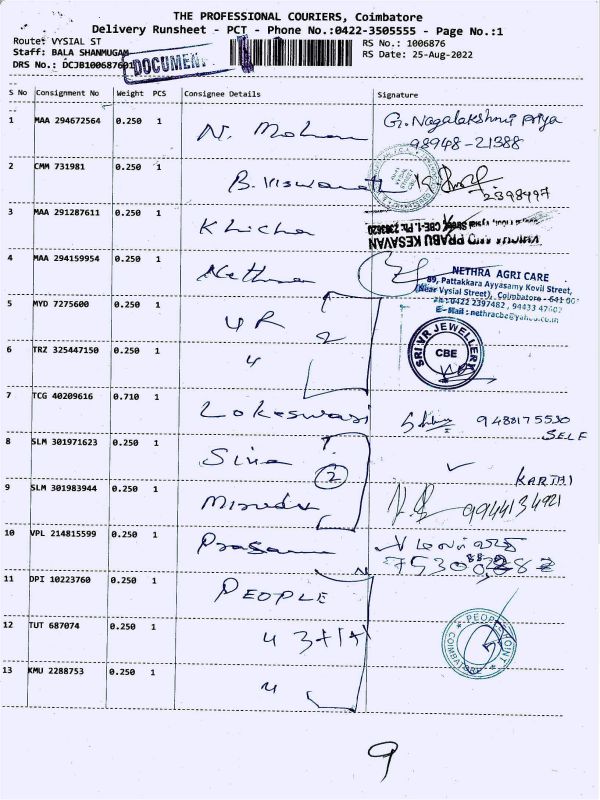 THE PROFESSIONAL COURIERS, Coimbatore
Delivery Runsheet - PCT - Phone No.:0422-3505555 - Page No.:1
Route: VYSIAL ST
RS No.: 1006876
Staff: BALA SHANMUGAM
RS Date: 25-Aug-2022
DRS No.: DCJB100687601
DOCUMENT
S No Consignment No Weight PCS Consignee Details Signature
1 MAA 294672564 0.250 1 N. Mohan G. Nagalakshmi Priya
98948-21388
2 CMM 731981 0.250 1 B. Viswanath
2398497
3 MAA 291287611 0.250 1 Khicha
PRABU KESAVAN
4 MAA 294159954 0.250 1 Nethra
NETHRA AGRI CARE
89, Pattakkara Ayyasamy Kovil Street,
(Near Vysial Street), Coimbatore - 641 001
Ph : 0422 2397482, 94433 47602
E-Mail : nethracbe@yahoo.co.in
5 MYD 7275600 0.250 1 YR 2
SRI VR JEWELLERY
CBE
6 TRZ 325447150 0.250 1 "
7 TCG 40209616 0.710 1 Lokeswari 9488175530
SELF
8 SLM 301971623 0.250 1 Siva 2
KARTHI
9 SLM 301983944 0.250 1 Mirudu 9944134921
10 VPL 214815599 0.250 1 Prasann
11 DPI 10223760 0.250 1 PEOPLE
12 TUT 687074 0.250 1 "
PEOPLE POINT
COIMBATORE
13 KMU 2288753 0.250 1 "
9